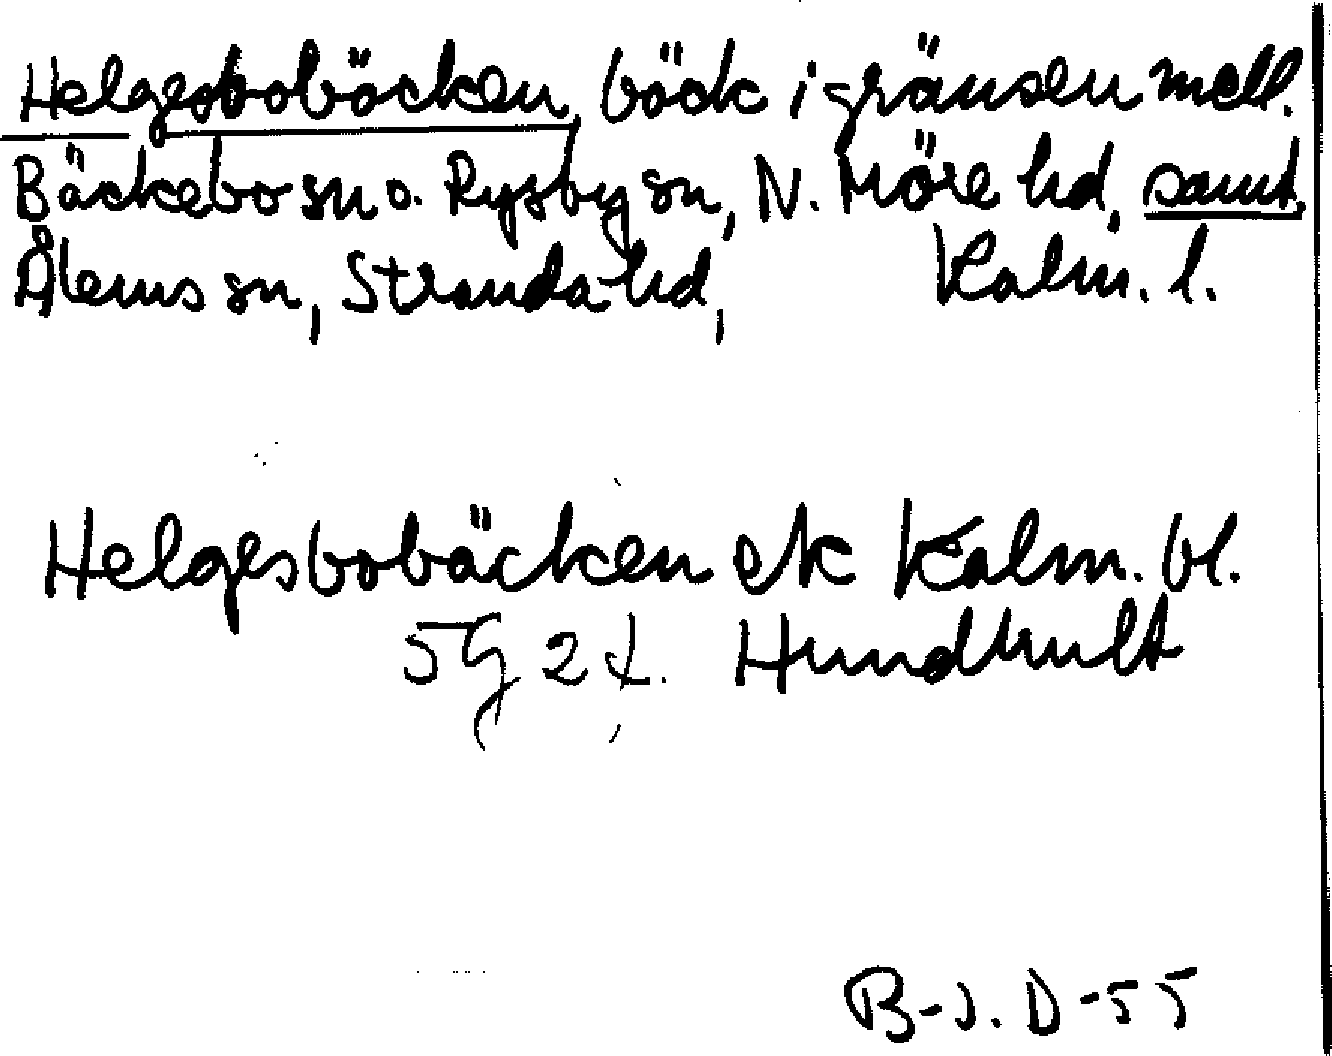 Helgesbobäcken, bäck i gränsen mell.
Bäckebo sn o. Ryssby sn, N. Möre hd, samt.
Ålems sn, Stranda hd, Kalm. l.
Helgesbobäcken ek Kalm. bl.
5G 2 f. Hundhult
B-J. D-55